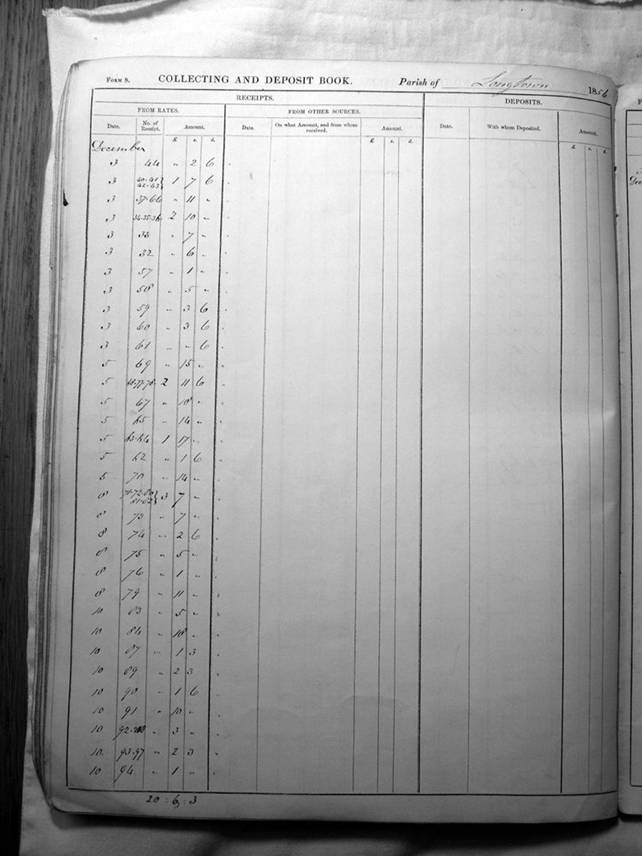 FORM 9. COLLECTING AND DEPOSIT BOOK. Parish of Longtown 1856
RECEIPTS. DEPOSITS.
FROM RATES. FROM OTHER SOURCES.
Date. No. of Receipt. Amount. Date. On what Amount, and from whom received. Amount. Date. With whom Deposited. Amount.
£ s. d. £ s. d. £ s. d.
December
3 44 " 2 6
3 40-41 42-43} 1 7 6
3 37-66 " 11 "
3 34-35-36 2 10 "
3 33 " 7 "
3 32 " 6 "
3 57 " 1 "
3 58 " 5 "
3 59 " 3 6
3 60 " 3 6
3 61 " " 6
5 69 " 15 "
5 2 11 6
5 67 " 18 "
5 65 " 14 "
5 63-64 1 17 "
5 62 " 1 6
5 70 " 14 "
8 3 7 "
8 73 " 7 "
8 74 " 2 6
8 75 " 5 "
8 76 " 1 "
8 79 " 11 "
10 83 " 5 "
10 84 " 18 "
10 87 " 1 3
10 89 " 2 3
10 90 " 1 6
10 91 " 10 "
10 " 3 "
10 93-97 " 2 3
10 94 " 1 "
20 : 6 : 3